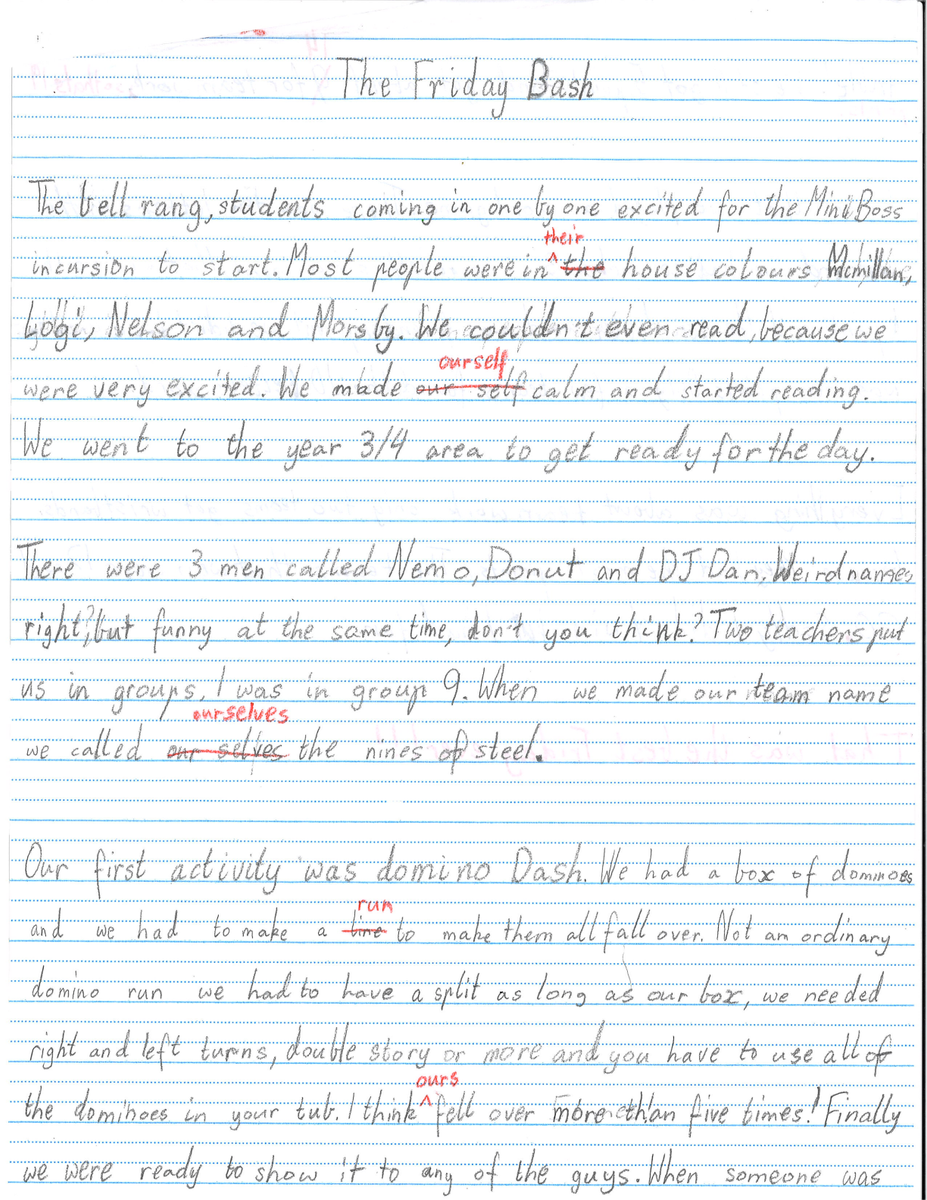 The Friday Bash
The bell rang, students coming in one by one excited for the Mini Boss
their
incursion to start. Most people were in ^ the house colours Mcmillan,
Logi, Nelson and Morsby. We couldn't even read, because we
ourself
were very excited. We made our self calm and started reading.
We went to the year 3/4 area to get ready for the day.
There were 3 men called Nemo, Donut and DJ Dan. Weird names
right?, but funny at the same time, don't you think? Two teachers put
us in groups, I was in group 9. When we made our team name
ourselves
we called our selves the nines of steel.
Our first activity was domino Dash. We had a box of dominoes
run
and we had to make a line to make them all fall over. Not an ordinary
domino run we had to have a split as long as our box, we needed
right and left turns, double story or more and you have to use all of
ours
the dominoes in your tub. I think ^ fell over more than five times! Finally
we were ready to show it to any of the guys. When someone was